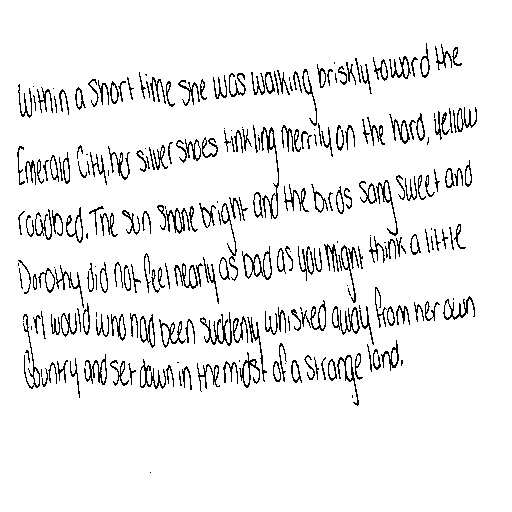 Within a short time she was walking briskly toward the
Emerald City, her silver shoes tinkling merrily on the hard, yellow
roadbed. The sun shone bright and the birds sang sweet and
Dorothy did not feel nearly as bad as you might think a little
girl would who had been suddenly whisked away from her own
Country and set down in the midst of a strange land.